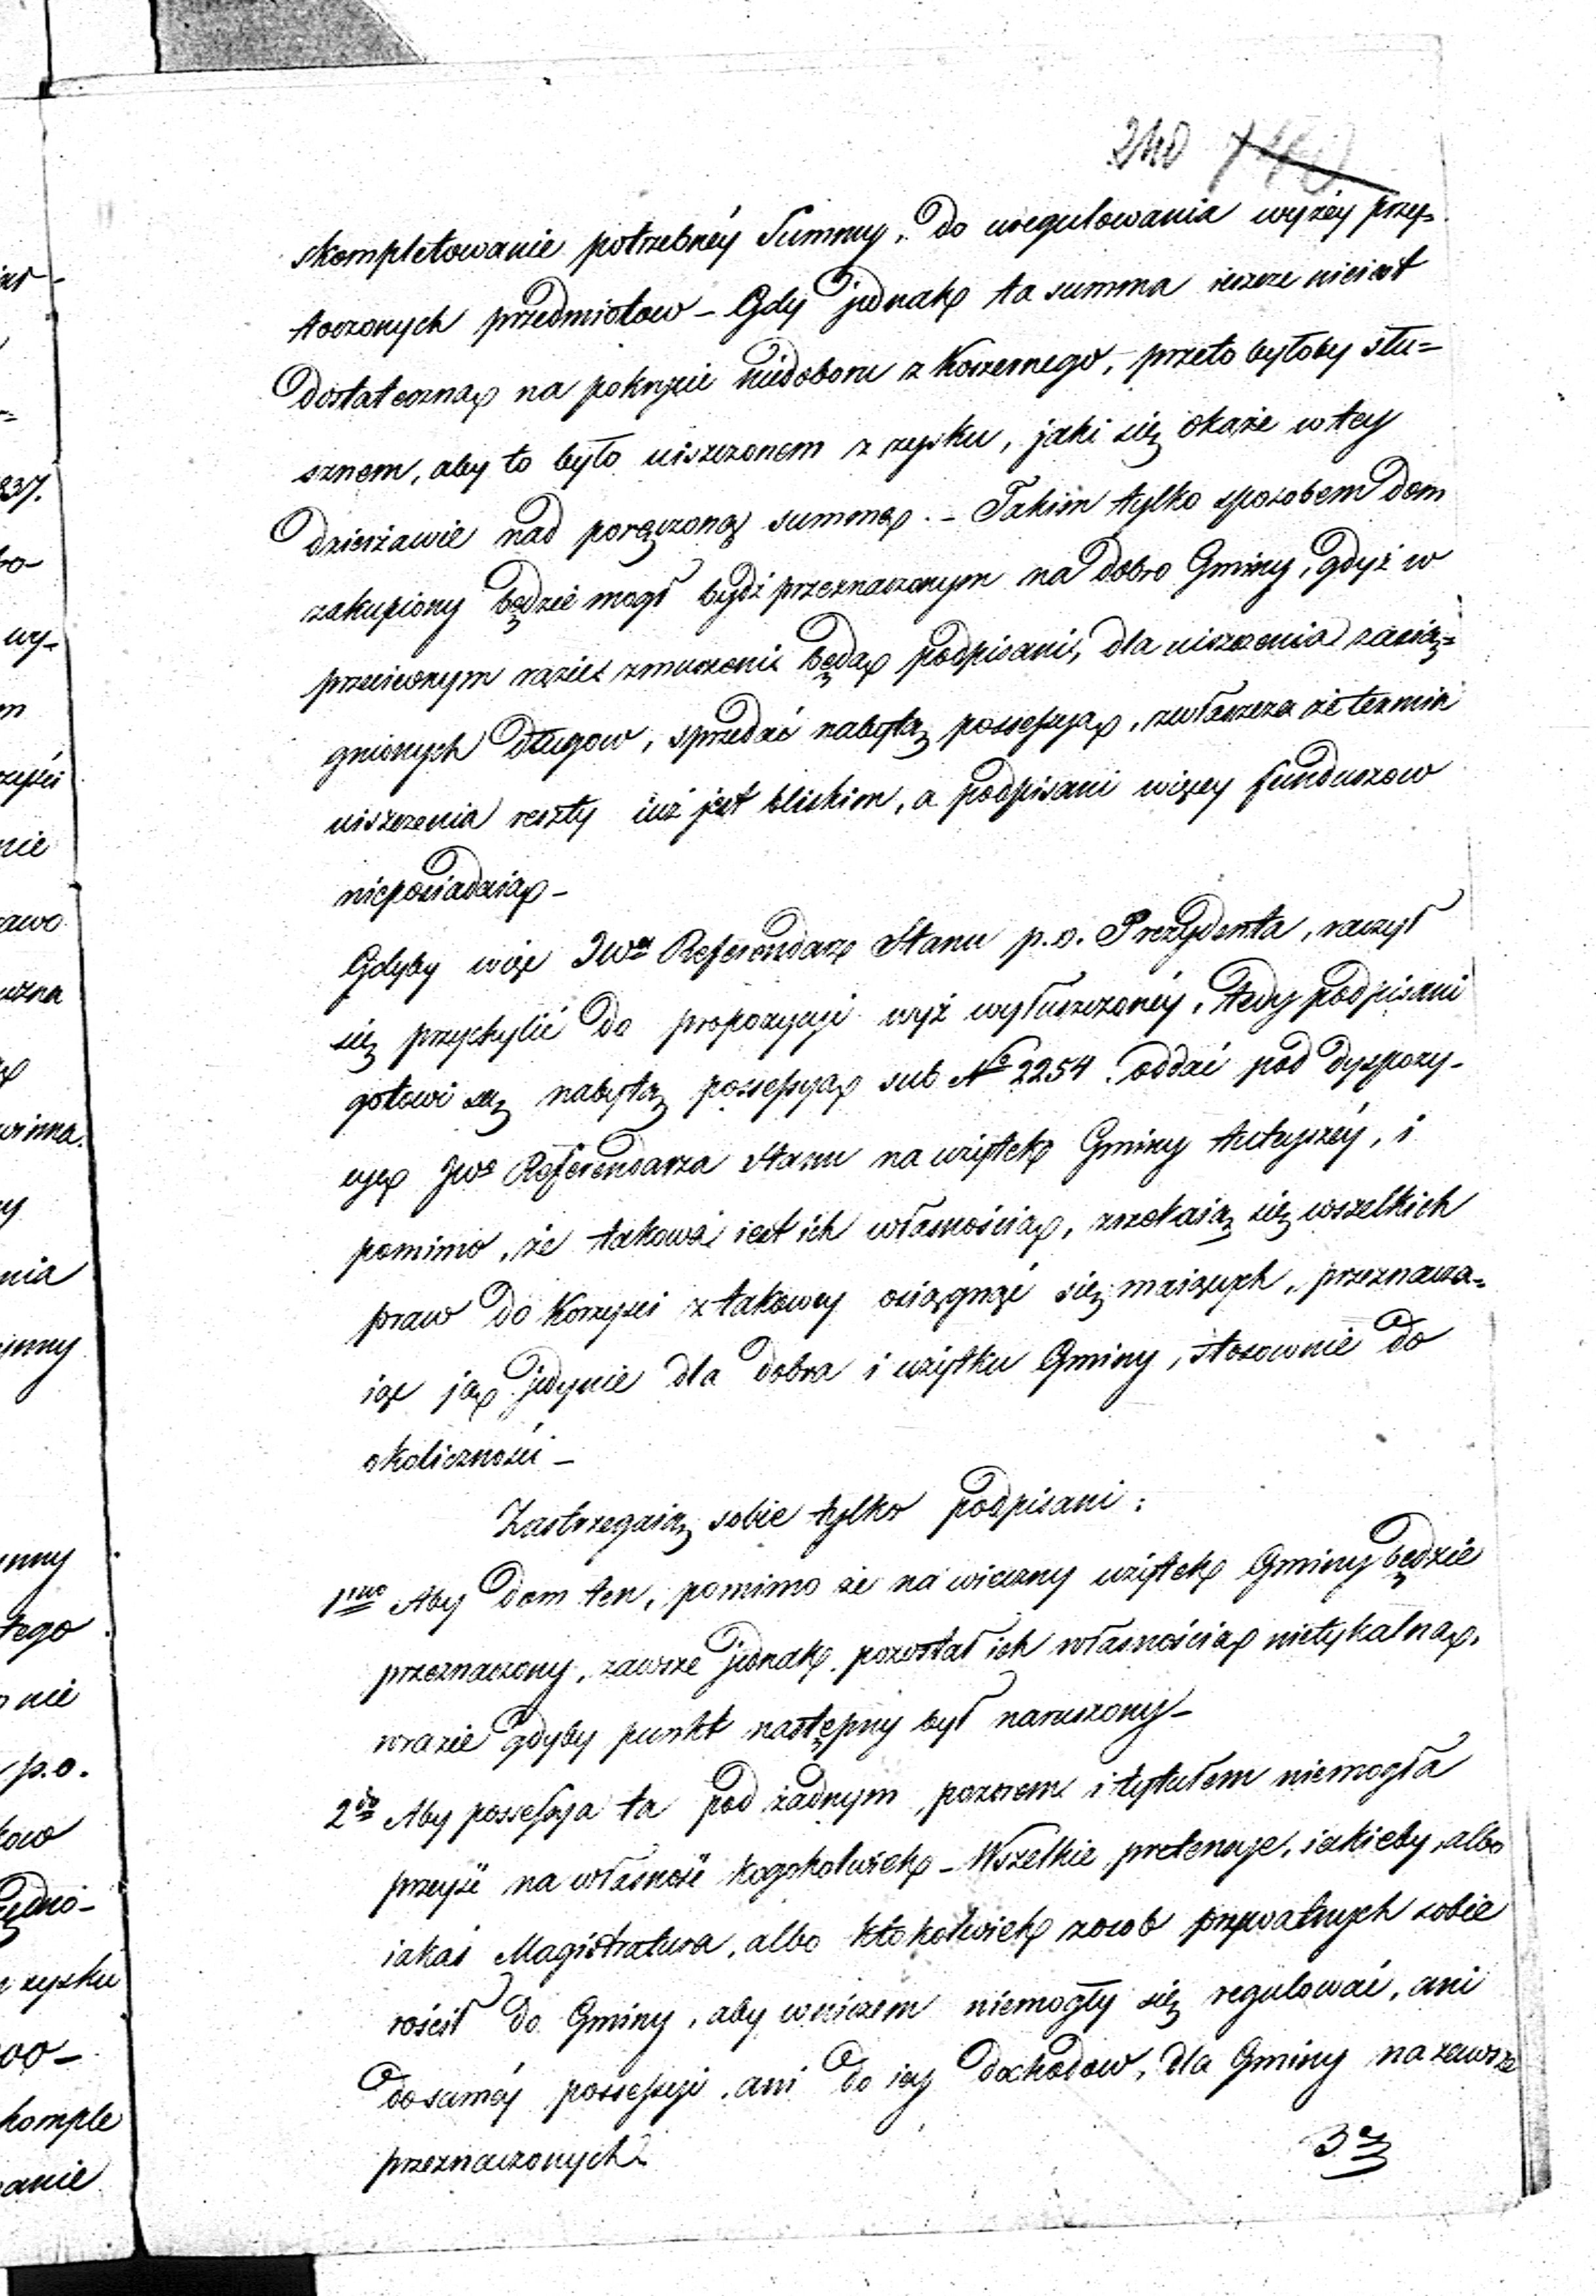 240
skompletowanie potrzebnéy Summy, do uregulowania wyżéy przy-
toczonych przedmiotow – Gdy jednak ta summa ieszcze nieiest
dostateczną na pokrycie niedoboru z Koszernego, przeto byłoby słu=
sznem, aby to było uiszczonem z zysku, jaki się okaże w tey
dzierżawie nad poręczoną summę. – Takim tylko sposobem dom
zakupiony będzie mogł bydź przeznaczonym na dobro Gminy, gdyż w
przeciwnym razie zmuszeni będą podpisani, dla uiszczenia zacią=
gnionych długow, sprzedać nabytą possessyą, zwłaszcza że termin
uiszczenia reszty iuż jest bliskim, a podpisani więcy funduszow
nieposiadaią –
Gdyby więc JWny Referendarz Stanu p.o. Prezydenta, raczył
się przychylić do propozycyi wyż wyłuszczonéy, tedy podpisani
gotowi są nabytą possessyą sub No 2254 oddać pod dyspozy-
cyę JWo Referendarza Stanu na użytek Gminy tutejszéy, i
pomimo, że takowa iest ich własnością, zrzekaią się wszelkich
praw do Korzyści z takowey osiągnąć się maiących, przeznacza=
iąc ją jedynie dla dobra i użytku Gminy, stosownie do
okoliczności –
Zastrzegaią sobie tylko podpisani:
1mo Aby dom ten, pomimo że na wieczny użytek Gminy będzie
przeznaczony, zawsze jednak pozostał ich własnością nietykalną,
wrazie gdyby punkt następny był naruszony –
2do Aby possessya ta pod żadnym pozorem i tytułem niemogła
przeyść na własność kogokolwiek – Wszelkie pretensye, iakieby albo
iakaś Magistratura, albo ktokolwiek zosob prywatnych sobie
rościł do Gminy, aby wniczem niemogły się regulować, ani
do saméy possessyi, ani do iey dochodow, dla Gminy nazawsze
przeznaczonych.